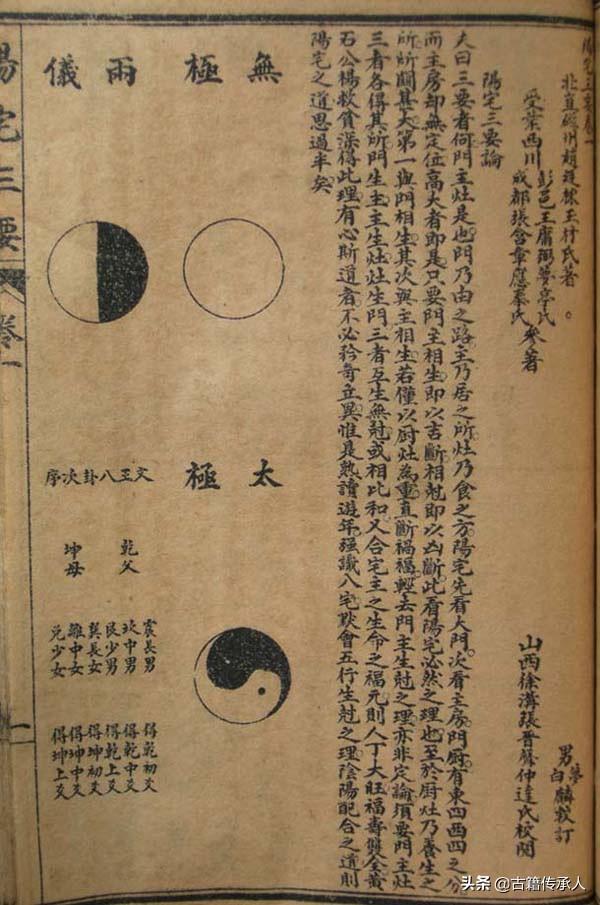 陽宅三要卷一
北直磁州趙廷棟玉材氏著
受業西川彭邑王庸弼夢亭氏
成都張含章應奉氏叅著
山西徐溝張晋蕃仲逹氏校閱
男夢白麟校訂
陽宅三要論
夫曰三要者何門主灶是也門乃由之路主乃居之所灶乃食之方陽宅先看大門次看主房門厨有東四西四之分
而主房却無定位高大者即是只要門主相生即以吉斷相尅即以凶斷此看陽宅必然之理也至於厨灶乃養生之
所所關甚大第一與門相生其次與主相生若僅以厨灶為重直斷禍福輕去門主生尅之理亦非定論須要門主灶
三者各得其所門生主主生灶灶生門三者互生無尅或相比和又合宅主之生命之福元則人丁大旺福壽雙全黄
石公楊救貧深得此理有心斯道者不必矜奇立異惟是熟讀遊年强識八宅默會五行生尅之理陰陽配合之道則
陽宅之道思過半矣
無極
太極
兩儀
文王八卦次序
乾父
坤母
震長男 得乾初爻
坎中男 得乾中爻
艮少男 得乾上爻
巽長女 得坤初爻
離中女 得坤中爻
兌少女 得坤上爻
陽宅三要 卷一
一
头条 @古籍传承人